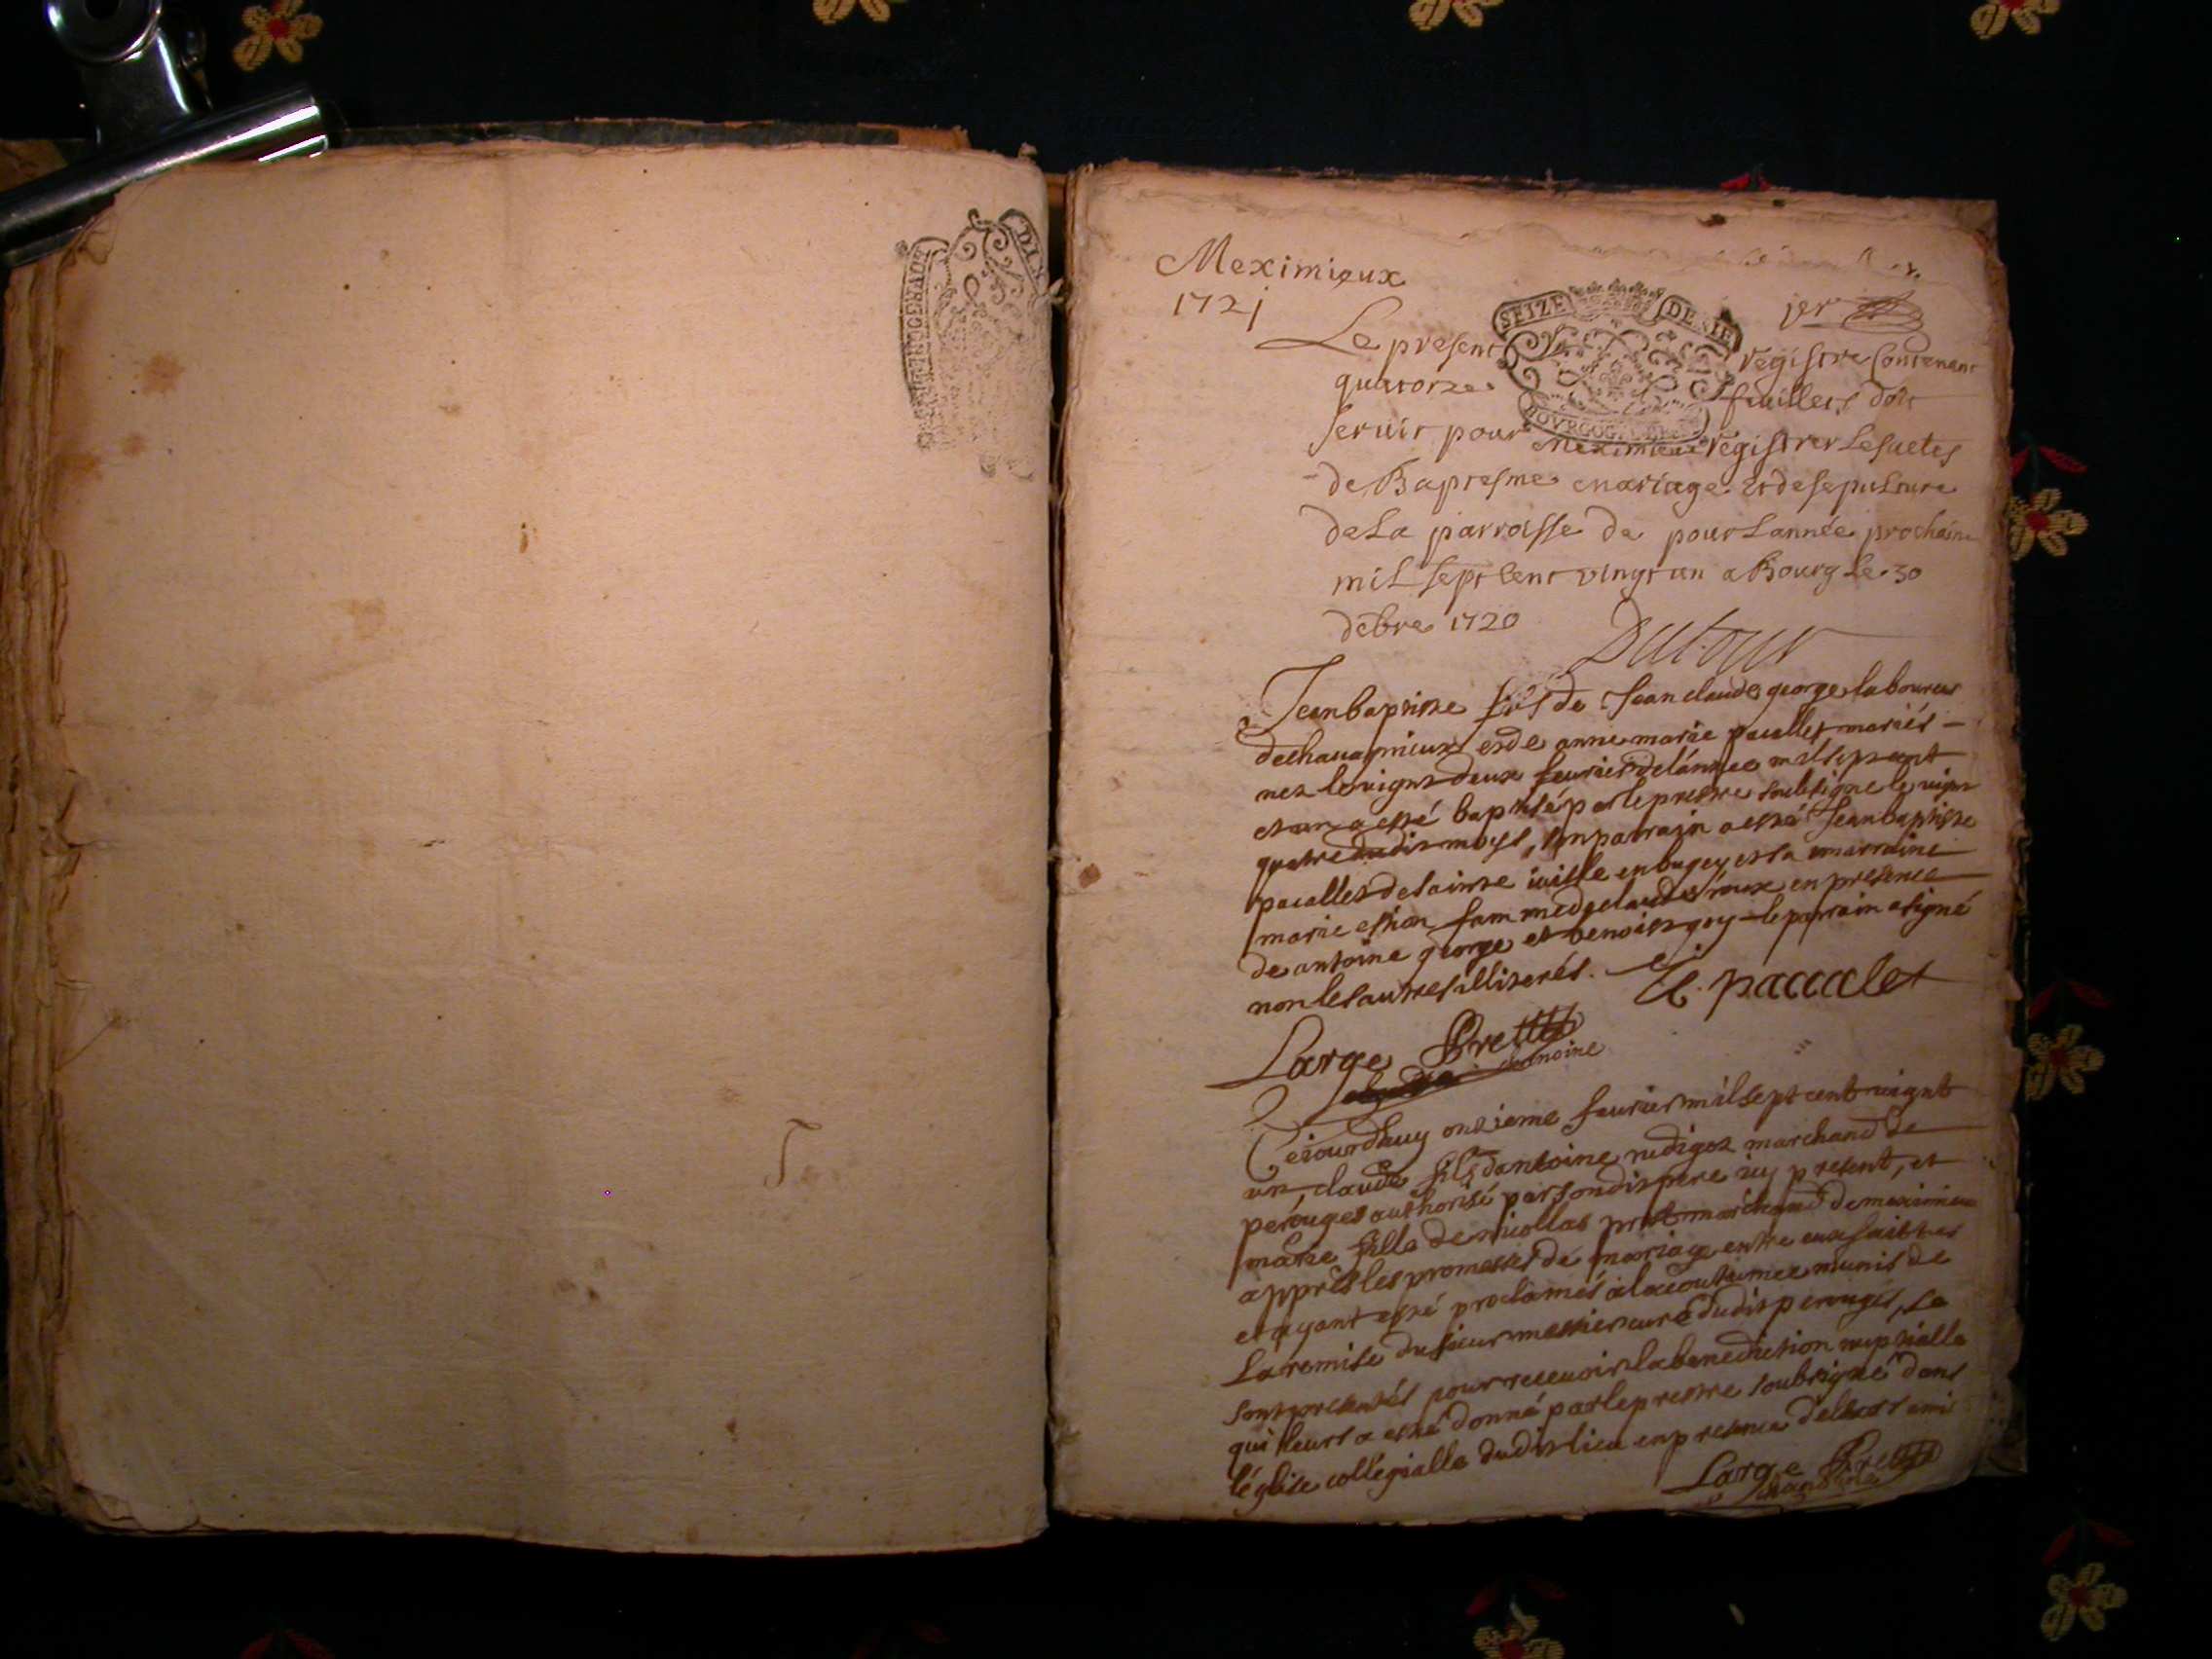 Meximieux
1721
SEIZE DENIE
BOVRGOG
jer
Le present registre Contenant
quatorze feuillets doit
servir pour Meximieux registrer Les actes
de Baptesme mariage et de sepulture
de La parroisse de pour Lannée prochaine
mil sept Cent vingt un a Bourg Le 30
debre 1720
Dutour
Jean baptiste fils de Jean claude george laboureur
de chavagnieux et de anne marie pacallet mariés
nez le vignt deux feurier de lánnee mil sept cent
et un a esté baptisé par le prestre soubsigne le vignt
quatre dudit moys, son parrain a esté Jean baptiste
pacallet de sainte iuille en bugey et sa marraine
marie fam me de claude roux en presence
de antoine george et benoist goy le parrain a signé
non les autres illiterés.
paccalet
Large Pretre
chanoine
Ceiourdhuy onzieme feurier mil sept cent vignt
un, claude fils dantoine rudigoz marchand de
perouges authorisé par son dit pere icy present, et
marie fille de nicollas prost marchand de meximieux
appres les promesses de mariage entre eux faittes
et ayant esté proclamés a la coutumee munis de
La remise du sieur messier curé dudit perouges, se
sont presentés pour recevoir la benediction nuptialle
qui leurs a esté donné par le prestre soubsigné dans
léglise collégialle dudit lieu en presence de leurs amis
Large Pretre
chanoine